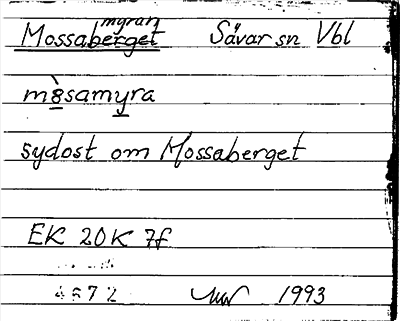 Mossabergetmyran Sävar sn Vbl
mòsamyra
sydost om Mossaberget
EK 20K 7f
4672 1993